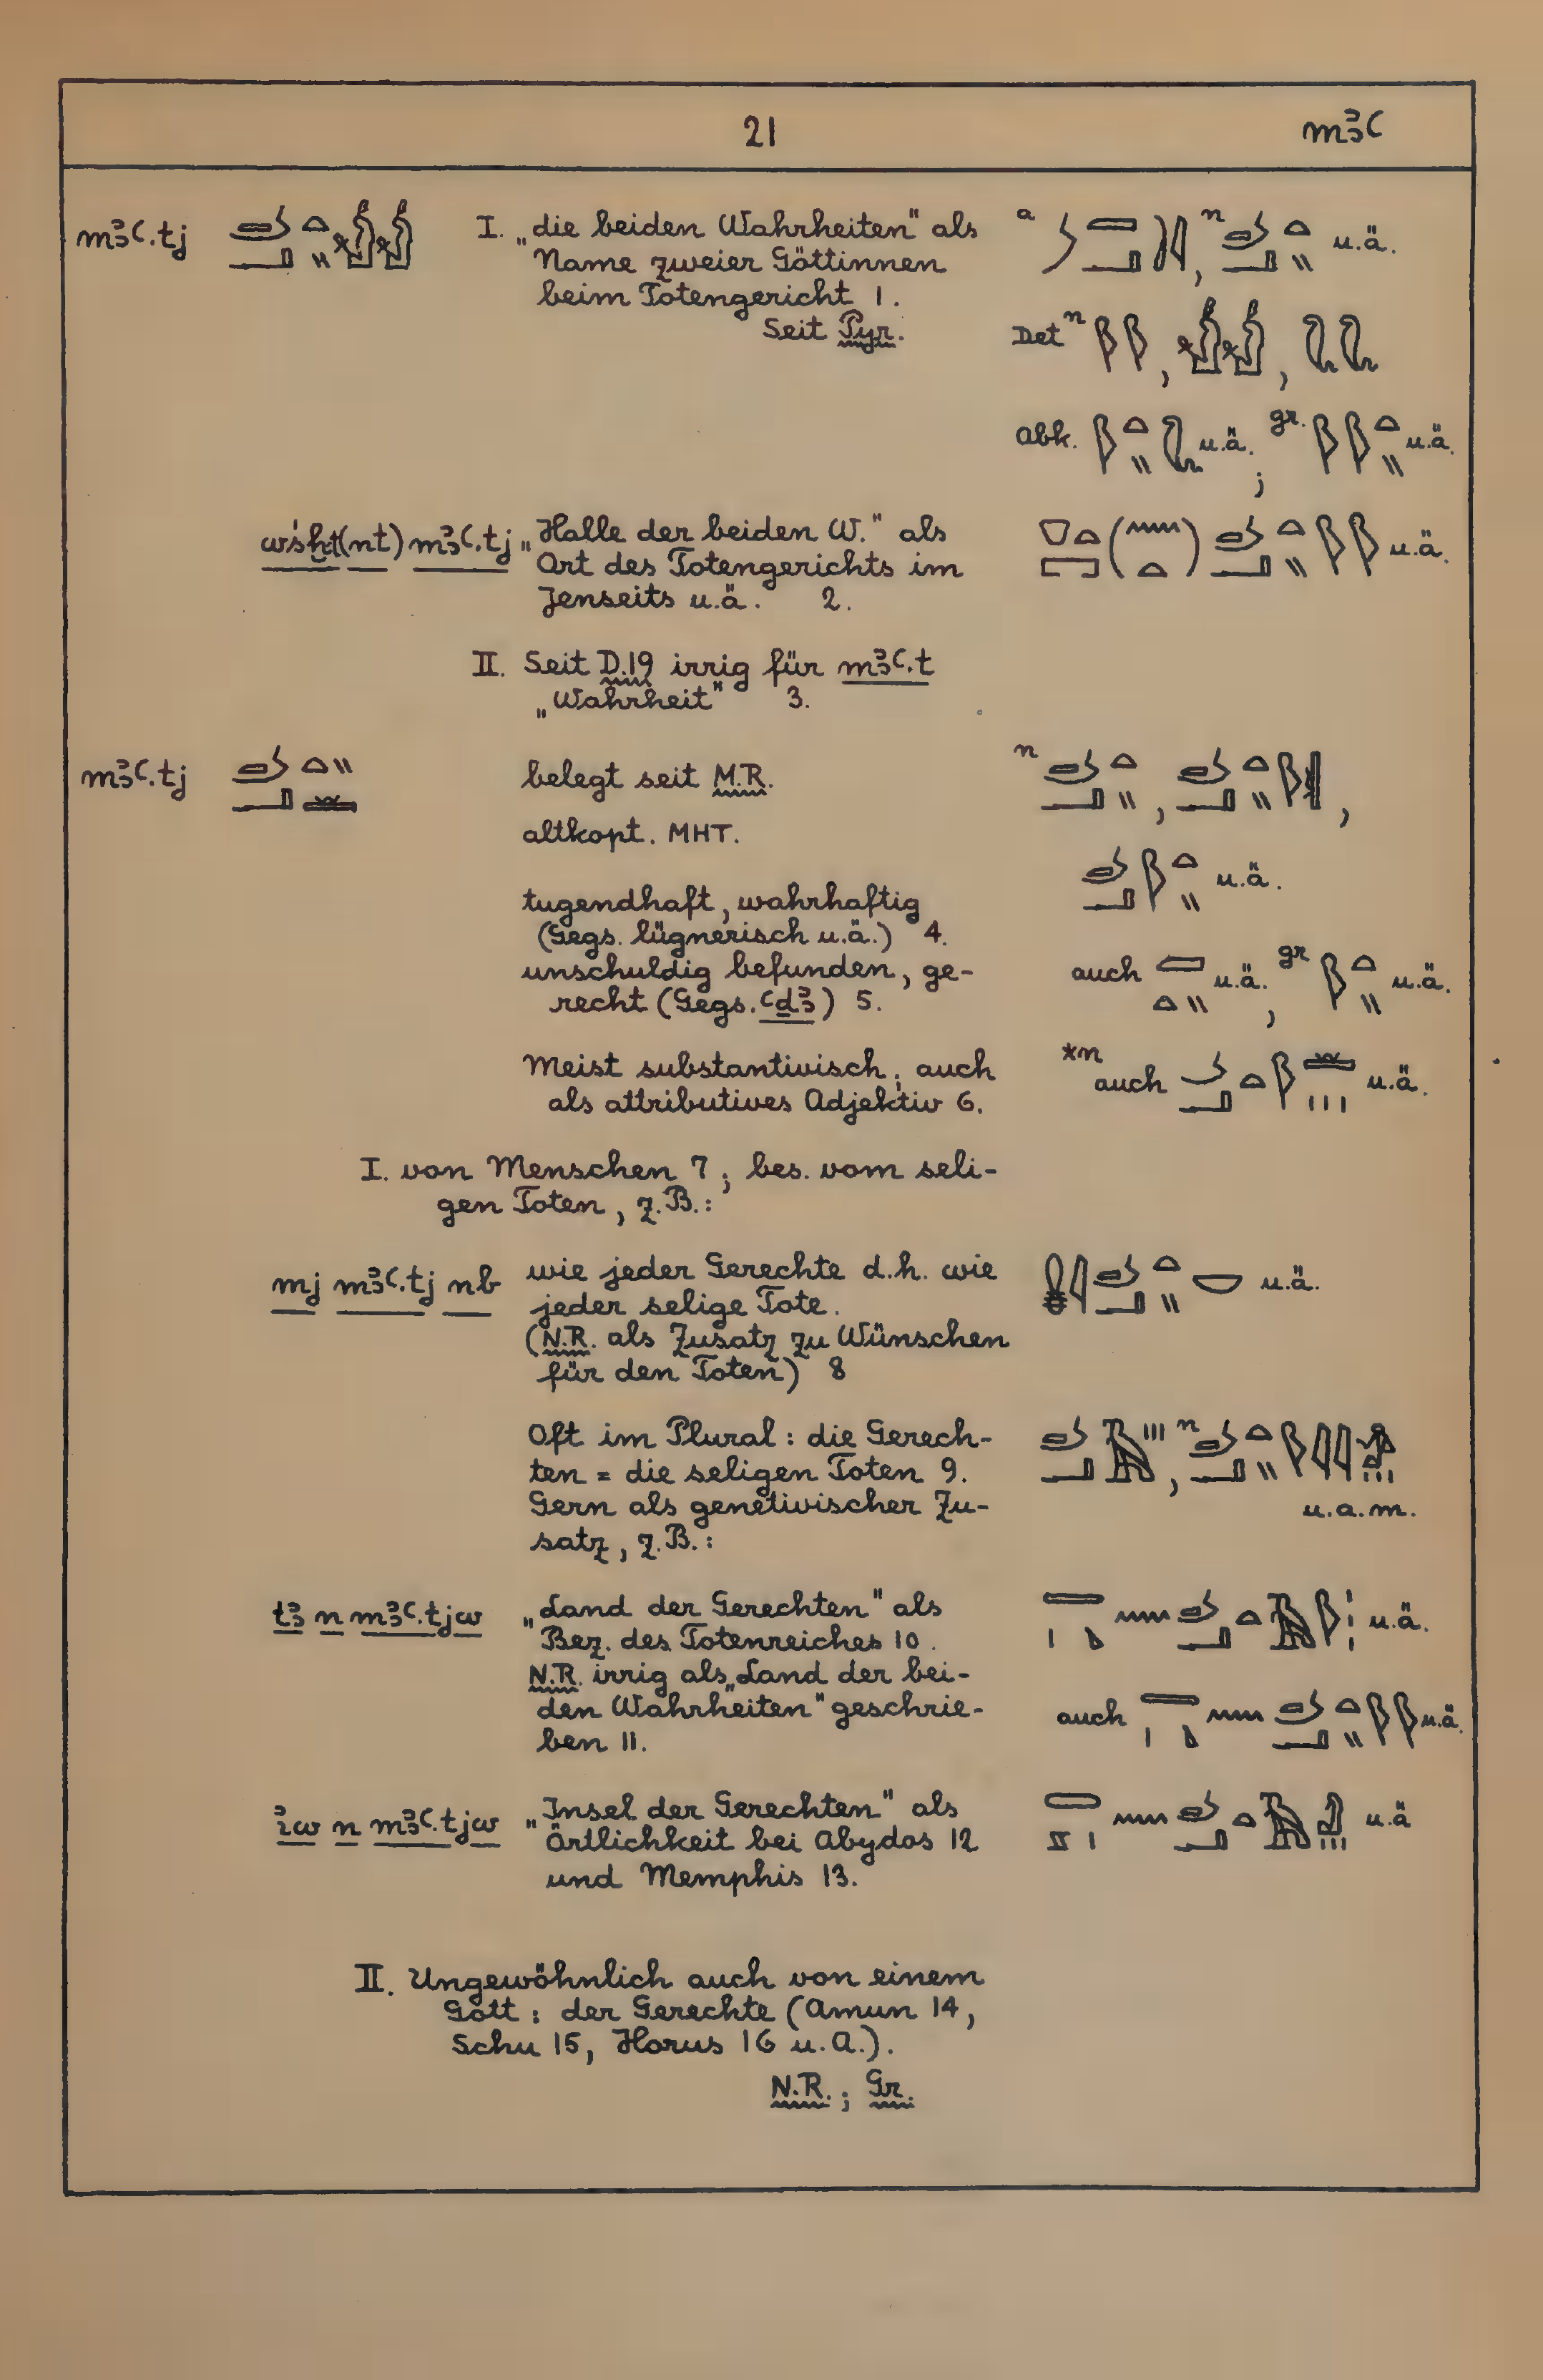 21 mꜣꜥ
mꜣꜥ.tj I. „die beiden Wahrheiten" als a , n u.ä.
Name zweier Göttinnen
beim Totengericht 1.
Seit Pyr. Det n , ,
Abk. u.ä. ; gr. u.ä.
wśḫt(nt) mꜣꜥ.tj „Halle der beiden W." als
Ort des Totengerichts im u.ä.
Jenseits u.ä. 2.
II. Seit D.19 irrig für mꜣꜥ.t
„Wahrheit" 3.
mꜣꜥ.tj belegt seit M.R. n , ,
altkopt. MHT.
u.ä.
tugendhaft, wahrhaftig
(Gegs. lügnerisch u.ä.) 4.
unschuldig befunden, ge- auch u.ä. , gr u.ä.
recht (Gegs. ꜥḏꜣ) 5.
Meist substantivisch; auch *n auch u.ä.
als attributives Adjektiv 6.
I. von Menschen 7; bes. vom seli-
gen Toten, z.B.:
mj mꜣꜥ.tj nb wie jeder Gerechte d.h. wie u.ä.
jeder selige Tote.
(N.R. als Zusatz zu Wünschen
für den Toten) 8
Oft im Plural: die Gerech- , n
ten = die seligen Toten 9.
Gern als genetivischer Zu- u.a.m.
satz, z.B.:
tꜣ n mꜣꜥ.tjw „Land der Gerechten" als u.ä.
Bez. des Totenreiches 10.
N.R. irrig als „Land der bei-
den Wahrheiten" geschrie- auch u.ä.
ben 11.
iw n mꜣꜥ.tjw „Insel der Gerechten" als u.ä
Örtlichkeit bei Abydos 12
und Memphis 13.
II. Ungewöhnlich auch von einem
Gott: der Gerechte (Amun 14,
Schu 15, Horus 16 u.A.).
N.R.; Gr.